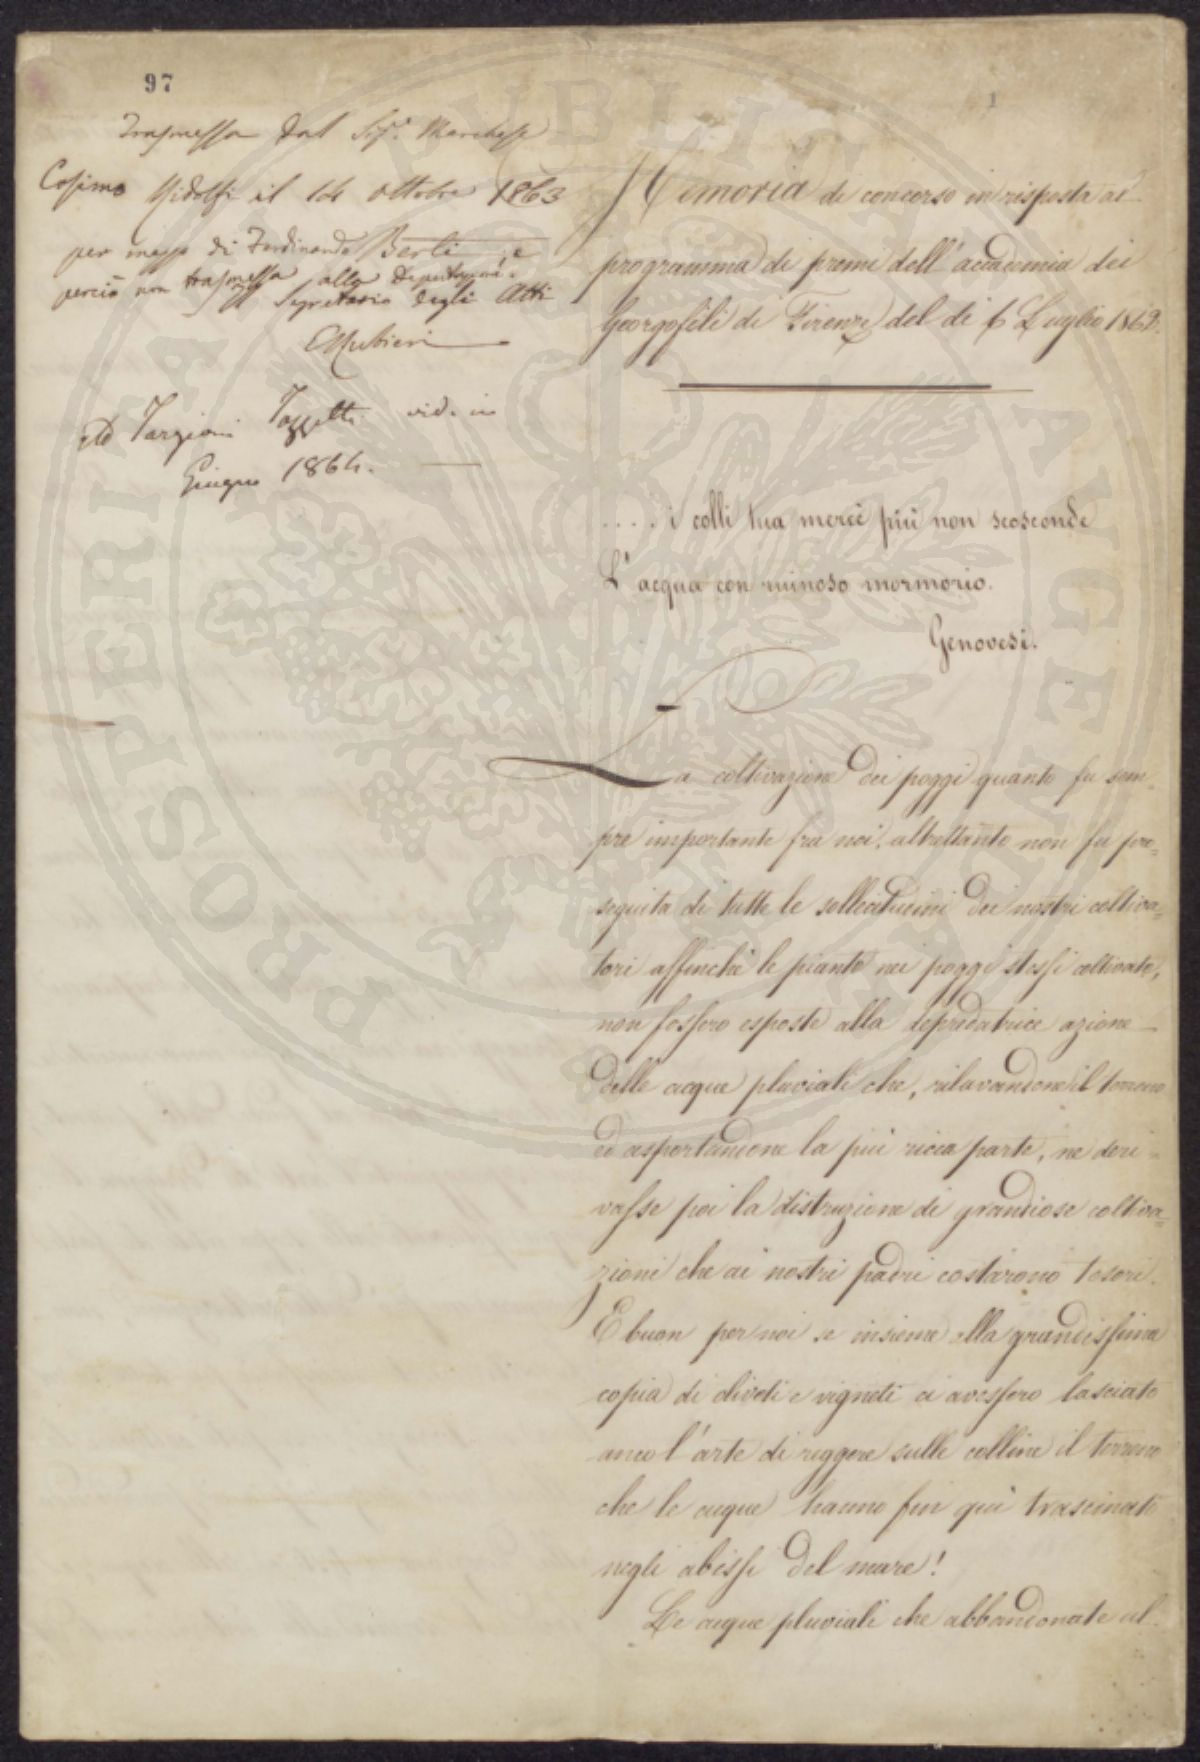 97
1
Trasmessa dal Sigr. Marchese
Cosimo Ridolfi il 14 ottobre 1863
per mezzo di Ferdinando Berti e
perciò non trasmessa alla Deputazione
Il Segretario degli Atti
LRubieri
Ad Targioni Tozzetti vid. in
Giugno 1864.
Memoria di concorso in risposta al
programma di premi dell'accademia dei
Georgofili di Firenze del dì 6 Luglio 1862.
.....i colli tua mercè più non scoscende
L'acqua con ruinoso mormorio.
Genovesi.
La coltivazione dei poggi quanto fu sem-
pre importante fra noi, altrettanto non fu pro=
seguita di tutte le sollecitudini dei nostri coltiva=
tori affinchè le piante nei poggi stessi coltivate,
non fossero esposte alla depredatrice azione
delle acque pluviali che, rilavandone il terreno
ed asportandone la più ricca parte, ne deri=
vasse poi la distruzione di grandiose coltiva=
zioni che ai nostri padri costarono tesori.
E buon per noi se insieme alla grandissima
copia di oliveti e vigneti ci avessero lasciato
anco l'arte di reggere sulle colline il terreno
che le acque hanno fin qui trascinato
negli abissi del mare!
Le acque pluviali che abbandonate al
PROSPERITATI PUBLICAE AUGENDAE